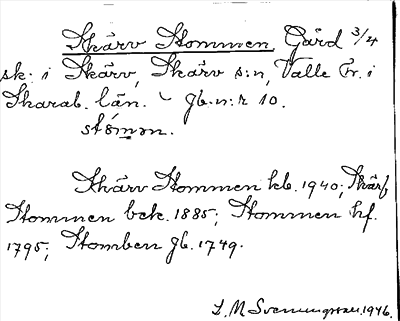 Skärv Stommen, Gård 3/4
sk. i Skärv, Skärv s:n, Valle hr. i
Skarab. län. - Jb. n:r 10.
stómən.
Skärv Stommen kb. 1940; Skärf
Stommen bek. 1885; Stommen hf.
1795; Stomben Jb. 1749.
L. M Svenungsson. 1946.